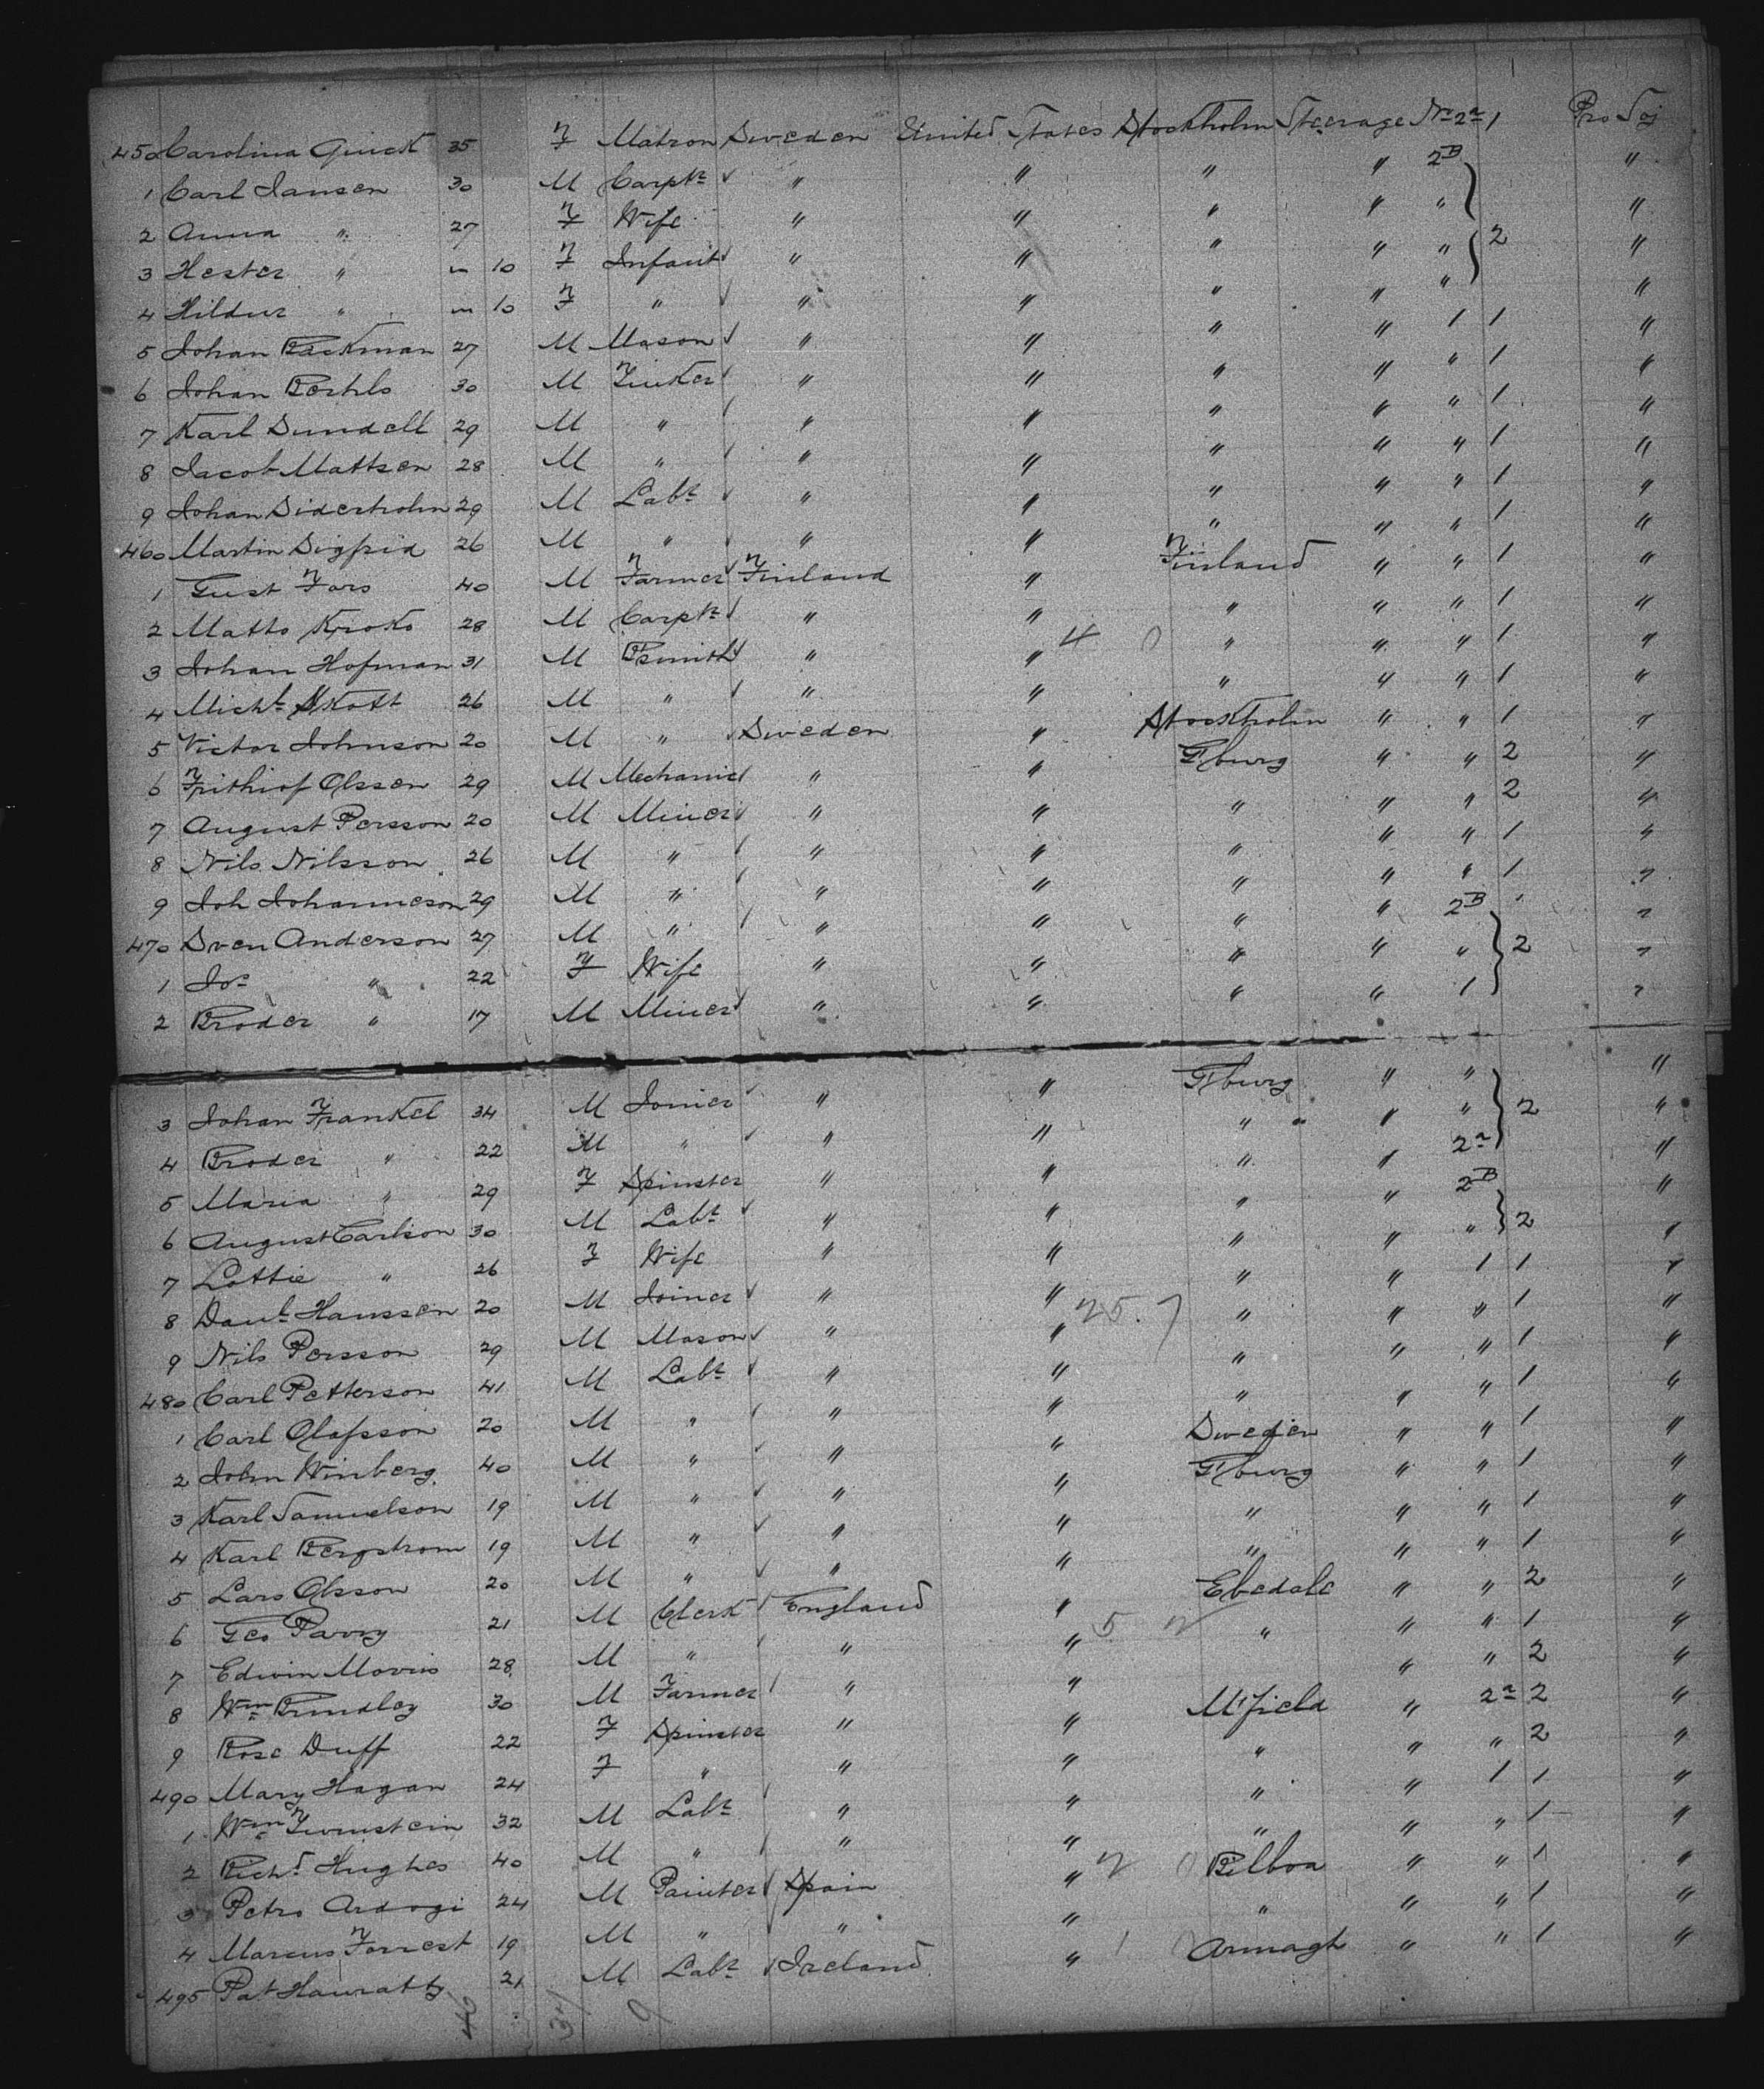 450 Carolina Quick 35 F Matron Sweden United States Stockholm Steerage No 2a 1 Pro Soj
1 Carl Jansen 30 M Carptr " " " " 2B "
2 Anna " 27 F Wife " " " " " "
3 Hester " m 10 F Infant " " " " " 2 "
4 Hildur " m 10 F " " " " " " "
5 Johan Backman 27 M Mason " " " " 1 1 "
6 Johan 30 M Tinker " " " " " 1 "
7 Karl Sundell 29 M " " " " " " 1 "
8 Jacob Mattsen 28 M " " " " " " 1 "
9 Johan Siderholm 29 M Labr " " " " " 1 "
460 Martin Sigfrid 26 M " " " " " " 1 "
1 Gust Fors 40 M Farmer Finland " Finland " " 1 "
2 Matts Kroko 28 M Carptr " " " " " 1 "
3 Johan Hofman 31 M Bsmith " " 4 0 " " " 1 "
4 Michl Skott 26 M " " " " " " 1 "
5 Victor Johnson 20 M " Sweden " Stockholm " " 1 "
6 Frithiof Olssen 29 M Mechanic " " Gburg " " 2 "
7 August Persson 20 M Miner " " " " " 2 "
8 Nils Nilsson 26 M " " " " " " 1 "
9 Joh Johanneson 29 M " " " " " " 1 "
470 Sven Anderson 27 M " " " " " 2B "
1 Jos " 22 F Wife " " " " " 2 "
2 Broder " 17 M Miner " " " " 1 "
3 Johan Frankel 34 M Joiner " " Gburg " " "
4 Broder " 22 M " " " " " " 2 "
5 Maria " 29 F Spinster " " " " 2a "
6 August Carlson 30 M Labr " " " " 2B "
7 Lottie " 26 F Wife " " " " " 2 "
8 Danl Hanssen 20 M Joiner " " " " 1 1 "
9 Nils Persson 29 M Mason " " 25 7 " " " 1 "
480 Carl Petterson 41 M Labr " " " " " 1 "
1 Carl Olofsson 20 M " " " " " " 1 "
2 John Winberg 40 M " " " Sweden " " 1 "
3 Karl Samuelson 19 M " " " Gburg " " 1 "
4 Karl Bergstrom 19 M " " " " " " 1 "
5 Lars Olsson 20 M " " " " " " 1 "
6 Geo Parry 21 M Clerk England " Ebedale " " 2 "
7 Edwin Morris 28 M " " " 5 2 " " " 1 "
8 Wm Brindley 30 M Farmer " " " " 2 "
9 Rose Duff 22 F Spinster " " Mfield " 2a 2 "
490 Mary Hagan 24 F " " " " " " 2 "
1 Wm 32 M Labr " " " " 1 1 "
2 Richd Hughes 40 M " " " " " " 1 "
3 Petro Ardogi 24 M Painter Spain " 2 0 Bilboa " " 1 "
4 Marcus Forrest 19 M " " " " " " 1 "
495 Pat Hanratty 21 M Labr Ireland " 1 Armagh " " 1 "
46 37 9